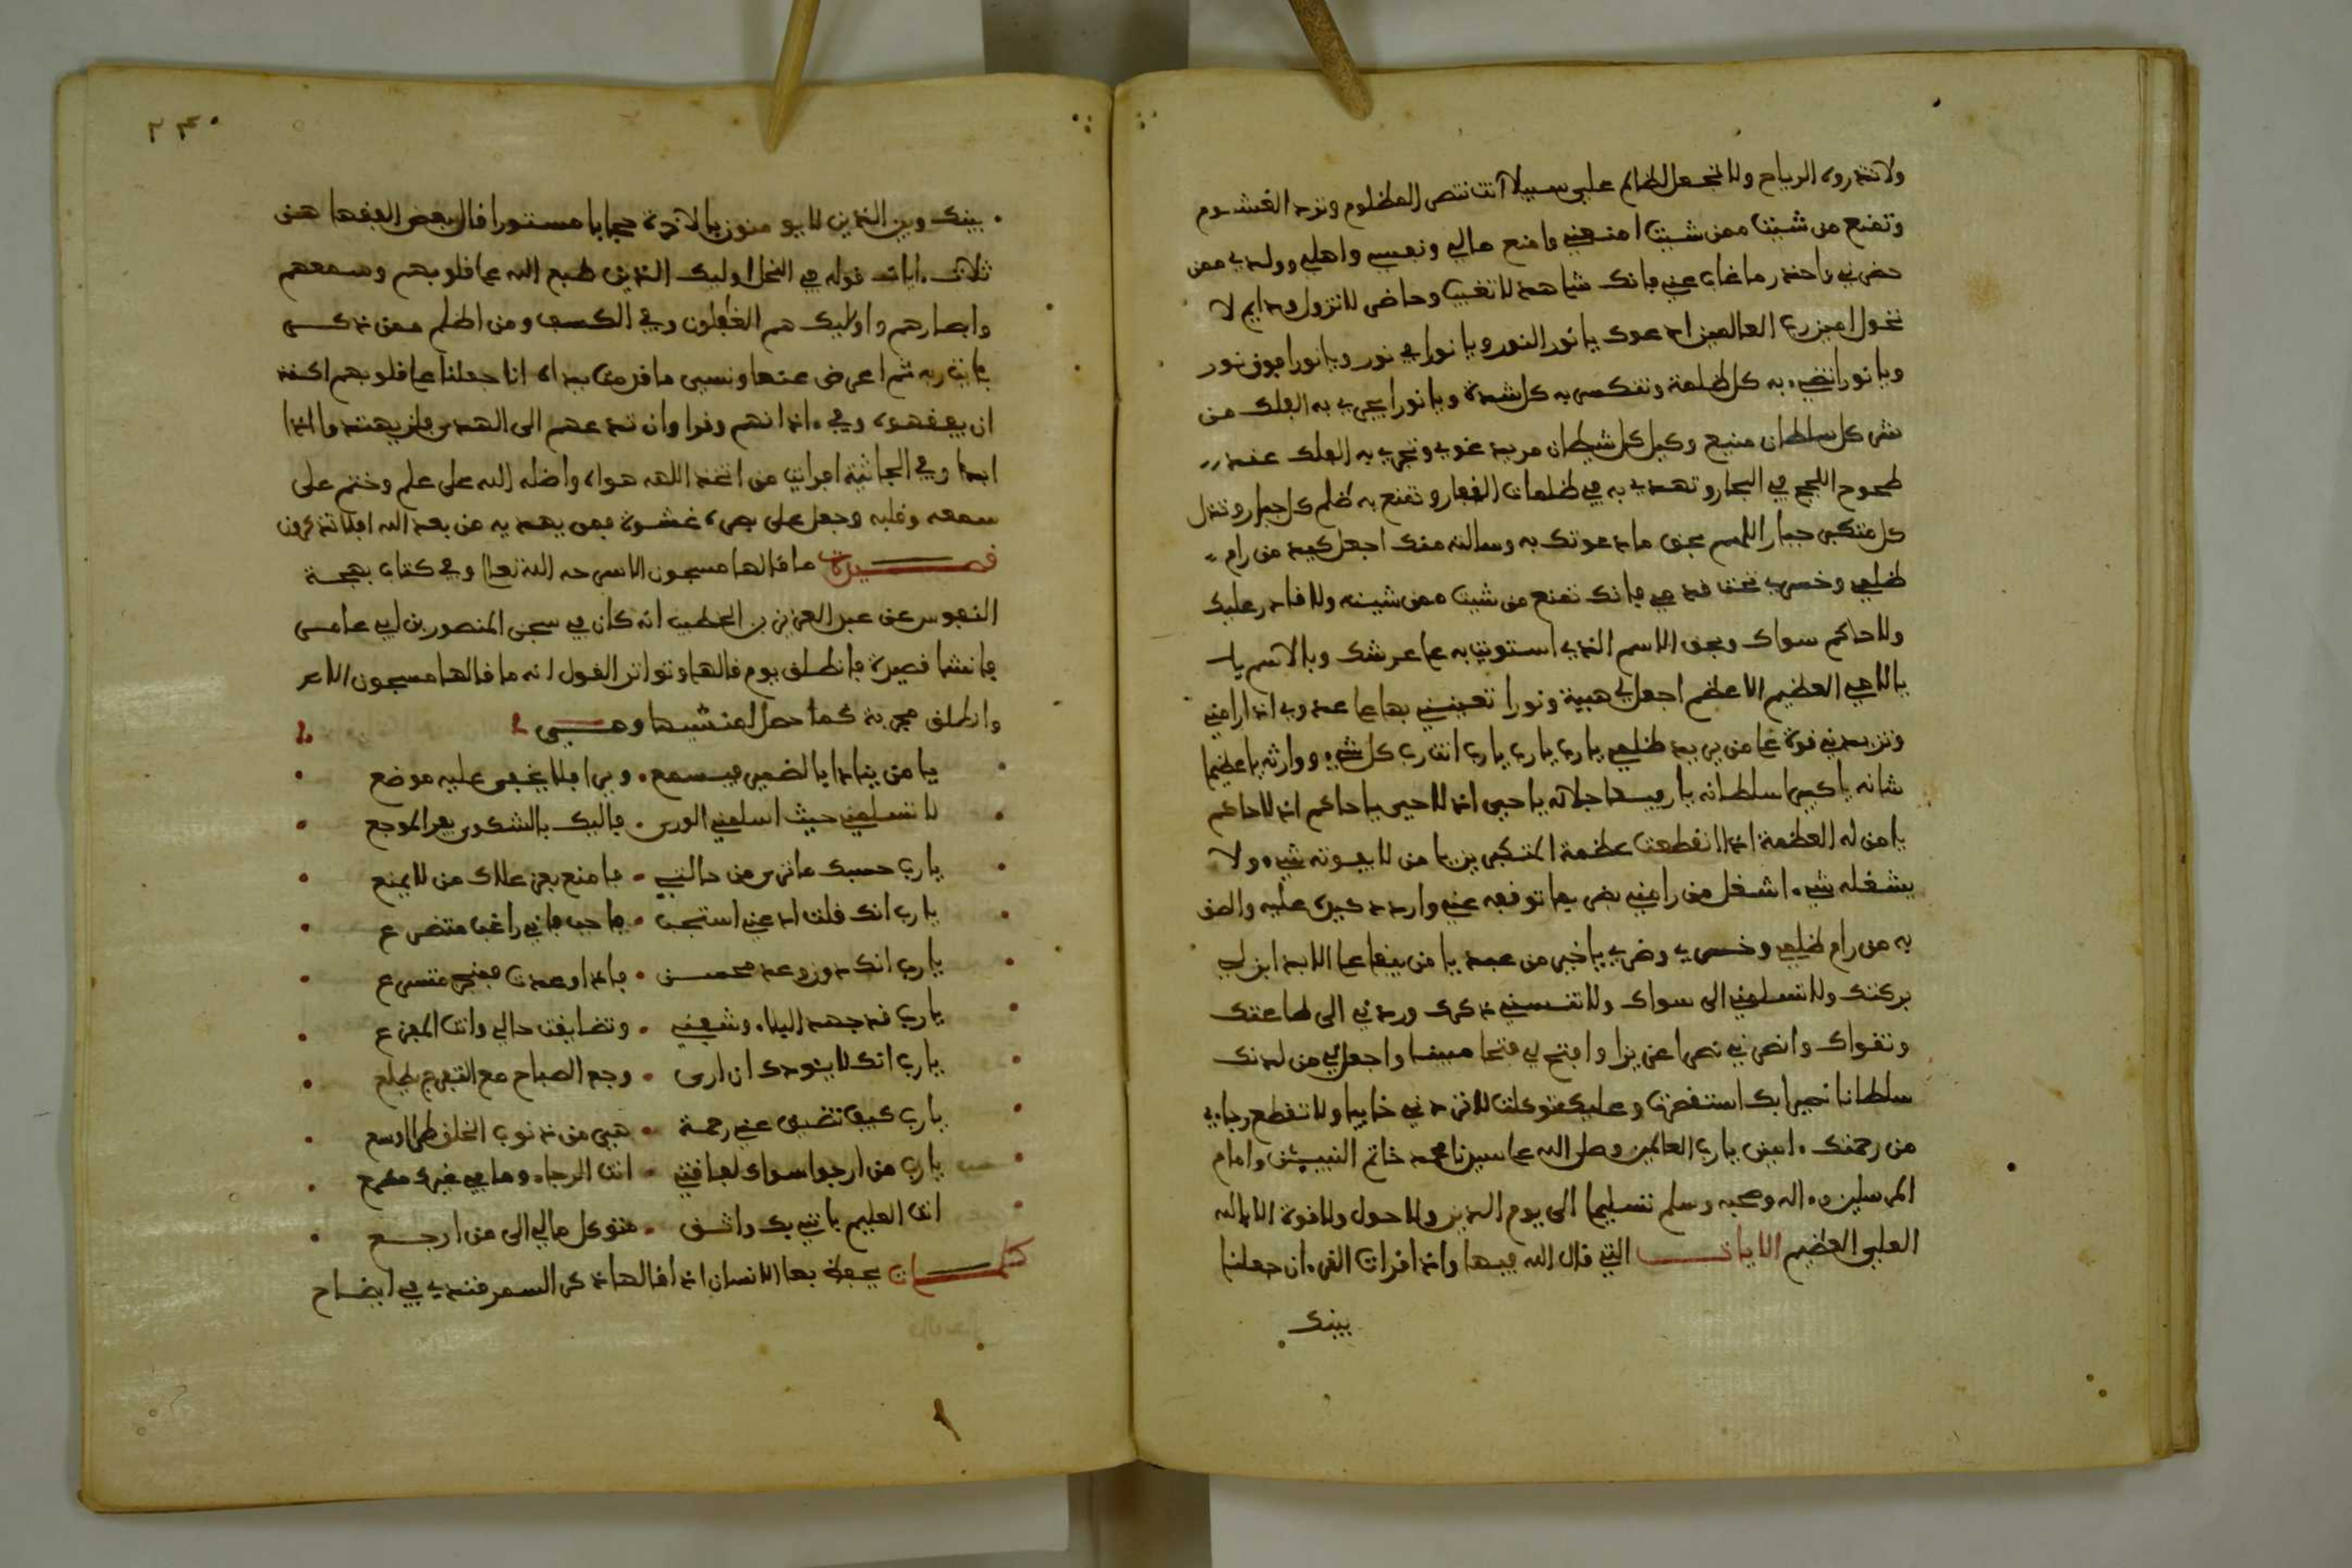 ولا تذروه الرياح ولا تجعل للظالم علي سبيلا انت تنصر المظلوم وترد الغشوم
وتمنع من شئت ممن شئت امنعني وامنع مالي ونفسي واهلي وولدي ممن
حضرني واحذر ما غاب عني فانك شاهد لا تغيب وحاضر لا تزول ودايم لا
تحول امين رب العالمين ادعوك يا نور النور ويا نورا في نور ويا نورا فوق نور
ويا نورا تضيء به كل ظلمة وتنكسر به كل شدة ويا نورا يجري به الفلك من
شر كل سلطان منيع وكيد كل شيطان مريد غوي وتجري به الفلك عند
طموح اللجج في البحار وتهدي به في ظلمات القفار وتمنع به ظلم كل جبار وتذل
كل متكبر جبار اللهم بحق ما دعوتك به وسالته منك اجعل كيد من رام
ظلمي وخسري تحت قدمي فانك تمنع من شئت ممن شيته ولا قادر عليك
ولا حاكم سواك وبحق الاسم الذي استويت به على عرشك وبالاسم يا
يا الاهي العظيم الاعظم اجعل لي هيبة ونورا تعينني بها على عدوي اذا رامني
وتزيدني قوة على من يريد ظلمي يا رب يا رب يا رب انت رب كل شيء ووارثه يا عظيما
شانه يا كبيرا سلطانه يا رفيعا جلاله يا حيي اذ لا حيي يا حاكم اذ لا حاكم
يا من له العظمة اذا انقطعت عظمة المتكبرين يا من لا يفوته شيء ولا
يشغله شيء اشغل من رامني بضر بما توقعه عني واردد كيده عليه والحق
به من رام ظلمي وخسري وضري يا خير من عبد يا من يبقا على الابد ابن لي
بركتك ولا تسلمني الى سواك ولا تنسني ذكرك وردني الى طاعتك
وتقواك وانصرني نصرا عزيزا وافتح لي فتحا مبينا واجعل لي من لدنك
سلطانا نصيرا بك استنصرت وعليك توكلت لا تردني خايبا ولا تقطع رجاءي
من رحمتك امين يا رب العالمين وصلى الله على سيدنا محمد خاتم النبيئن وامام
المرسلين واله وصحبه وسلم تسليما الى يوم الدين ولا حول ولا قوة الا بالله
العلي العظيم الايات التي قال الله فيها واذا قرات القرءان جعلنا
بينك
٢٣٠
بينك وبين الذين لا يومنون بالاخرة حجابا مستورا قال بعض الفقها هن
ثلاث ايات قوله في النحل اوليك الذين طبع الله على قلوبهم وسمعهم
وابصارهم واوليك هم الغفلون وفي الكهف ومن اظلم ممن ذكر
بايت ربه ثم اعرض عنها ونسي ما قدمت يداه انا جعلنا على قلوبهم اكنة
ان يفقهوه وفي اذانهم وقرا وان تدعهم الى الهدى فلن يهتدوا اذا
ابدا وفي الجاثية افرايت من اتخذ الهه هواه واضله الله على علم وختم على
سمعه وقلبه وجعل على بصره غشوة فمن يهديه من بعد الله افلا تذكرون
قصيدة ما قالها مسجون الا سرحه الله تعلى وفي كتاب بهجة
النفوس عن عبد العزيز بن الخطيب انه كان في سجن المنصور بن ابي عامر
فانشا قصيدة فانطلق يوم قالها وتواتر القول انه ما قالها مسجون الا عر
وانطلق مجربة كما حصل لمنشيها وهي
يا من يناد ايا لضمير فيسمع ويرا فلا يخفى عليه موضع
لا تسلمني حيث اسلمني الورى فاليك بالشكوى يفر الموجع
يا رب حسبك ما ترى من حالتي فامنع بعز علاك من لا يمنع
يا رب انك قلت ادعني استجب فاجب فاني راغب متضرع
يا رب انك ذو وعد محسن فاذا وعدت فمنجز متسرع
يا رب قد جهد البلاء وشفني وتضايقت حالي وانت المفزع
يا رب انك لا ينودك ان ارى وجه الصباح مع التفرج يطلع
يا رب كيف تضيق عني رحمة هي من ذنوب الخلق طرا اوسع
يا رب من ارجوا سواك لفاقتي انت الرجاء وما في غيرك مطمع
انت العليم بانني بك واثق متوكل مالي الى من ارجع
كلمات يحفظ بها الانسان اذا قالها ذكر السمرقندي في ايضاح